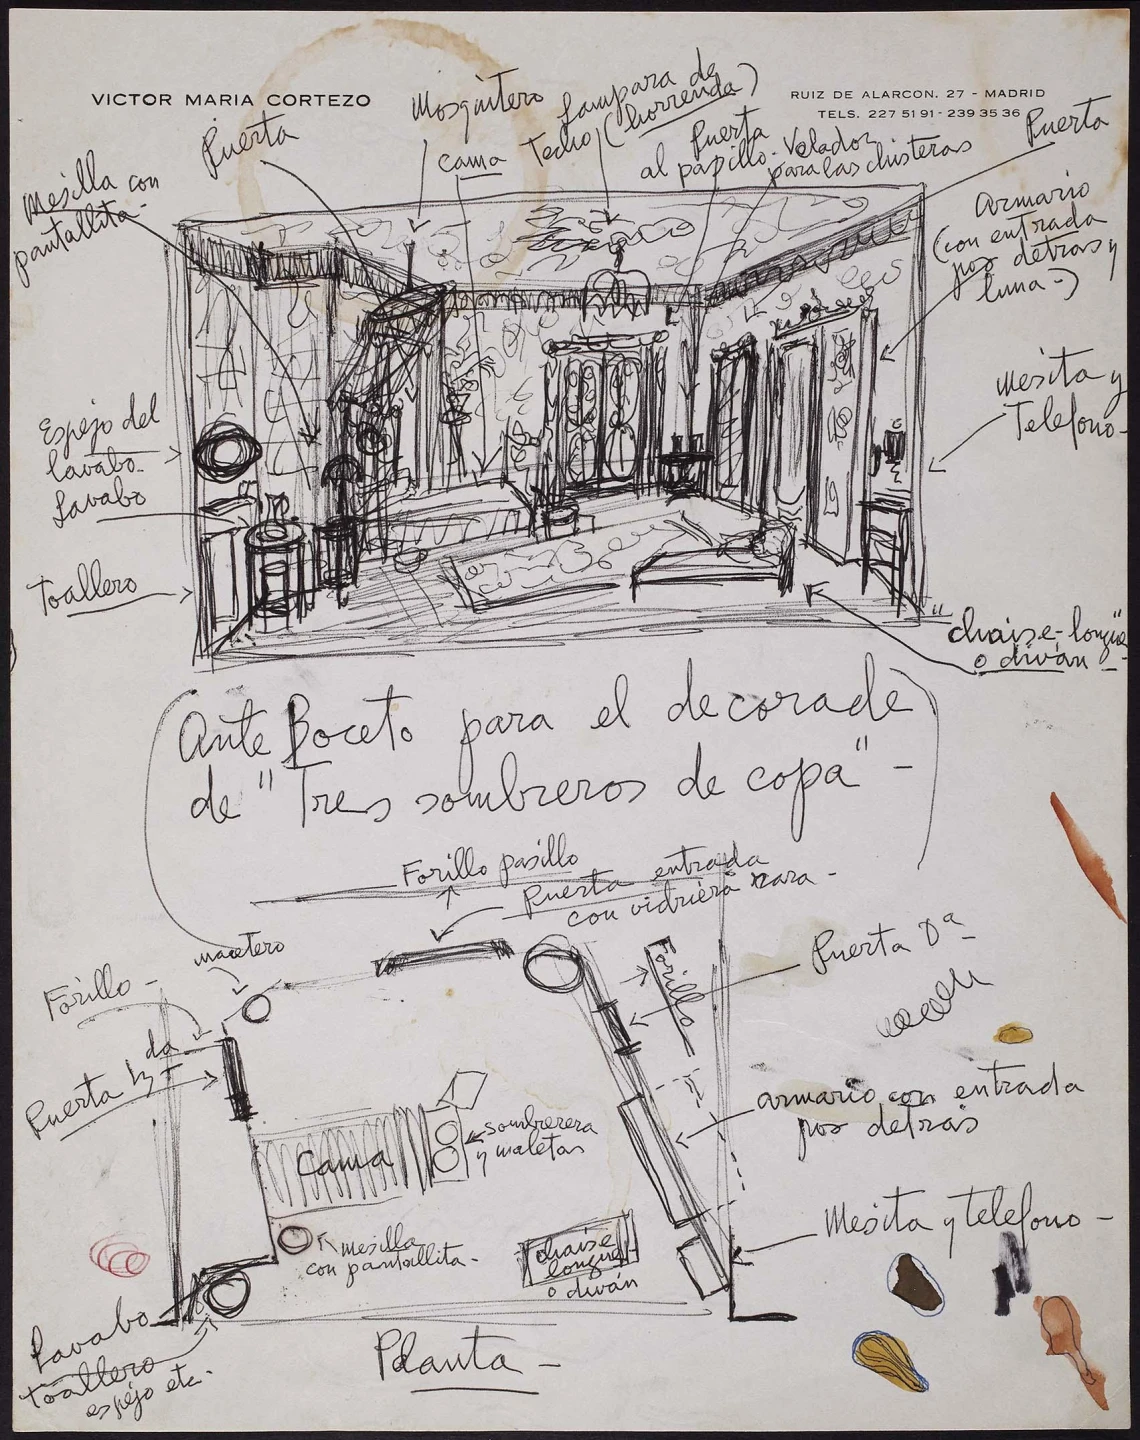 VICTOR MARIA CORTEZO
RUIZ DE ALARCON, 27 - MADRID
TELS. 227 51 91 - 239 35 36
Mesilla con
pantallita-
Puerta
Mosquitero
cama
Lampara de
Techo (horrenda)
Puerta
al pasillo.
Velador
para las chisteras
Puerta
Armario
(con entrada
por detras y
luna-)
Mesita y
Telefono-
Espejo del
lavabo-
Lavabo
Toallero
"chaise-longue"
o diván-
(Ante Boceto para el decorade
de "Tres sombreros de copa"-)
Forillo pasillo
Puerta entrada
con vidriera rara-
macetero
Forillo-
Forillo
Puerta Dª
Puerta Izda
armario con entrada
por detrás
cama
sombrerera
y maletas
mesilla
con pantallita-
chaise
longue-
o diván
Mesita y telefono-
Lavabo
toallero
espejo etc.
Planta-